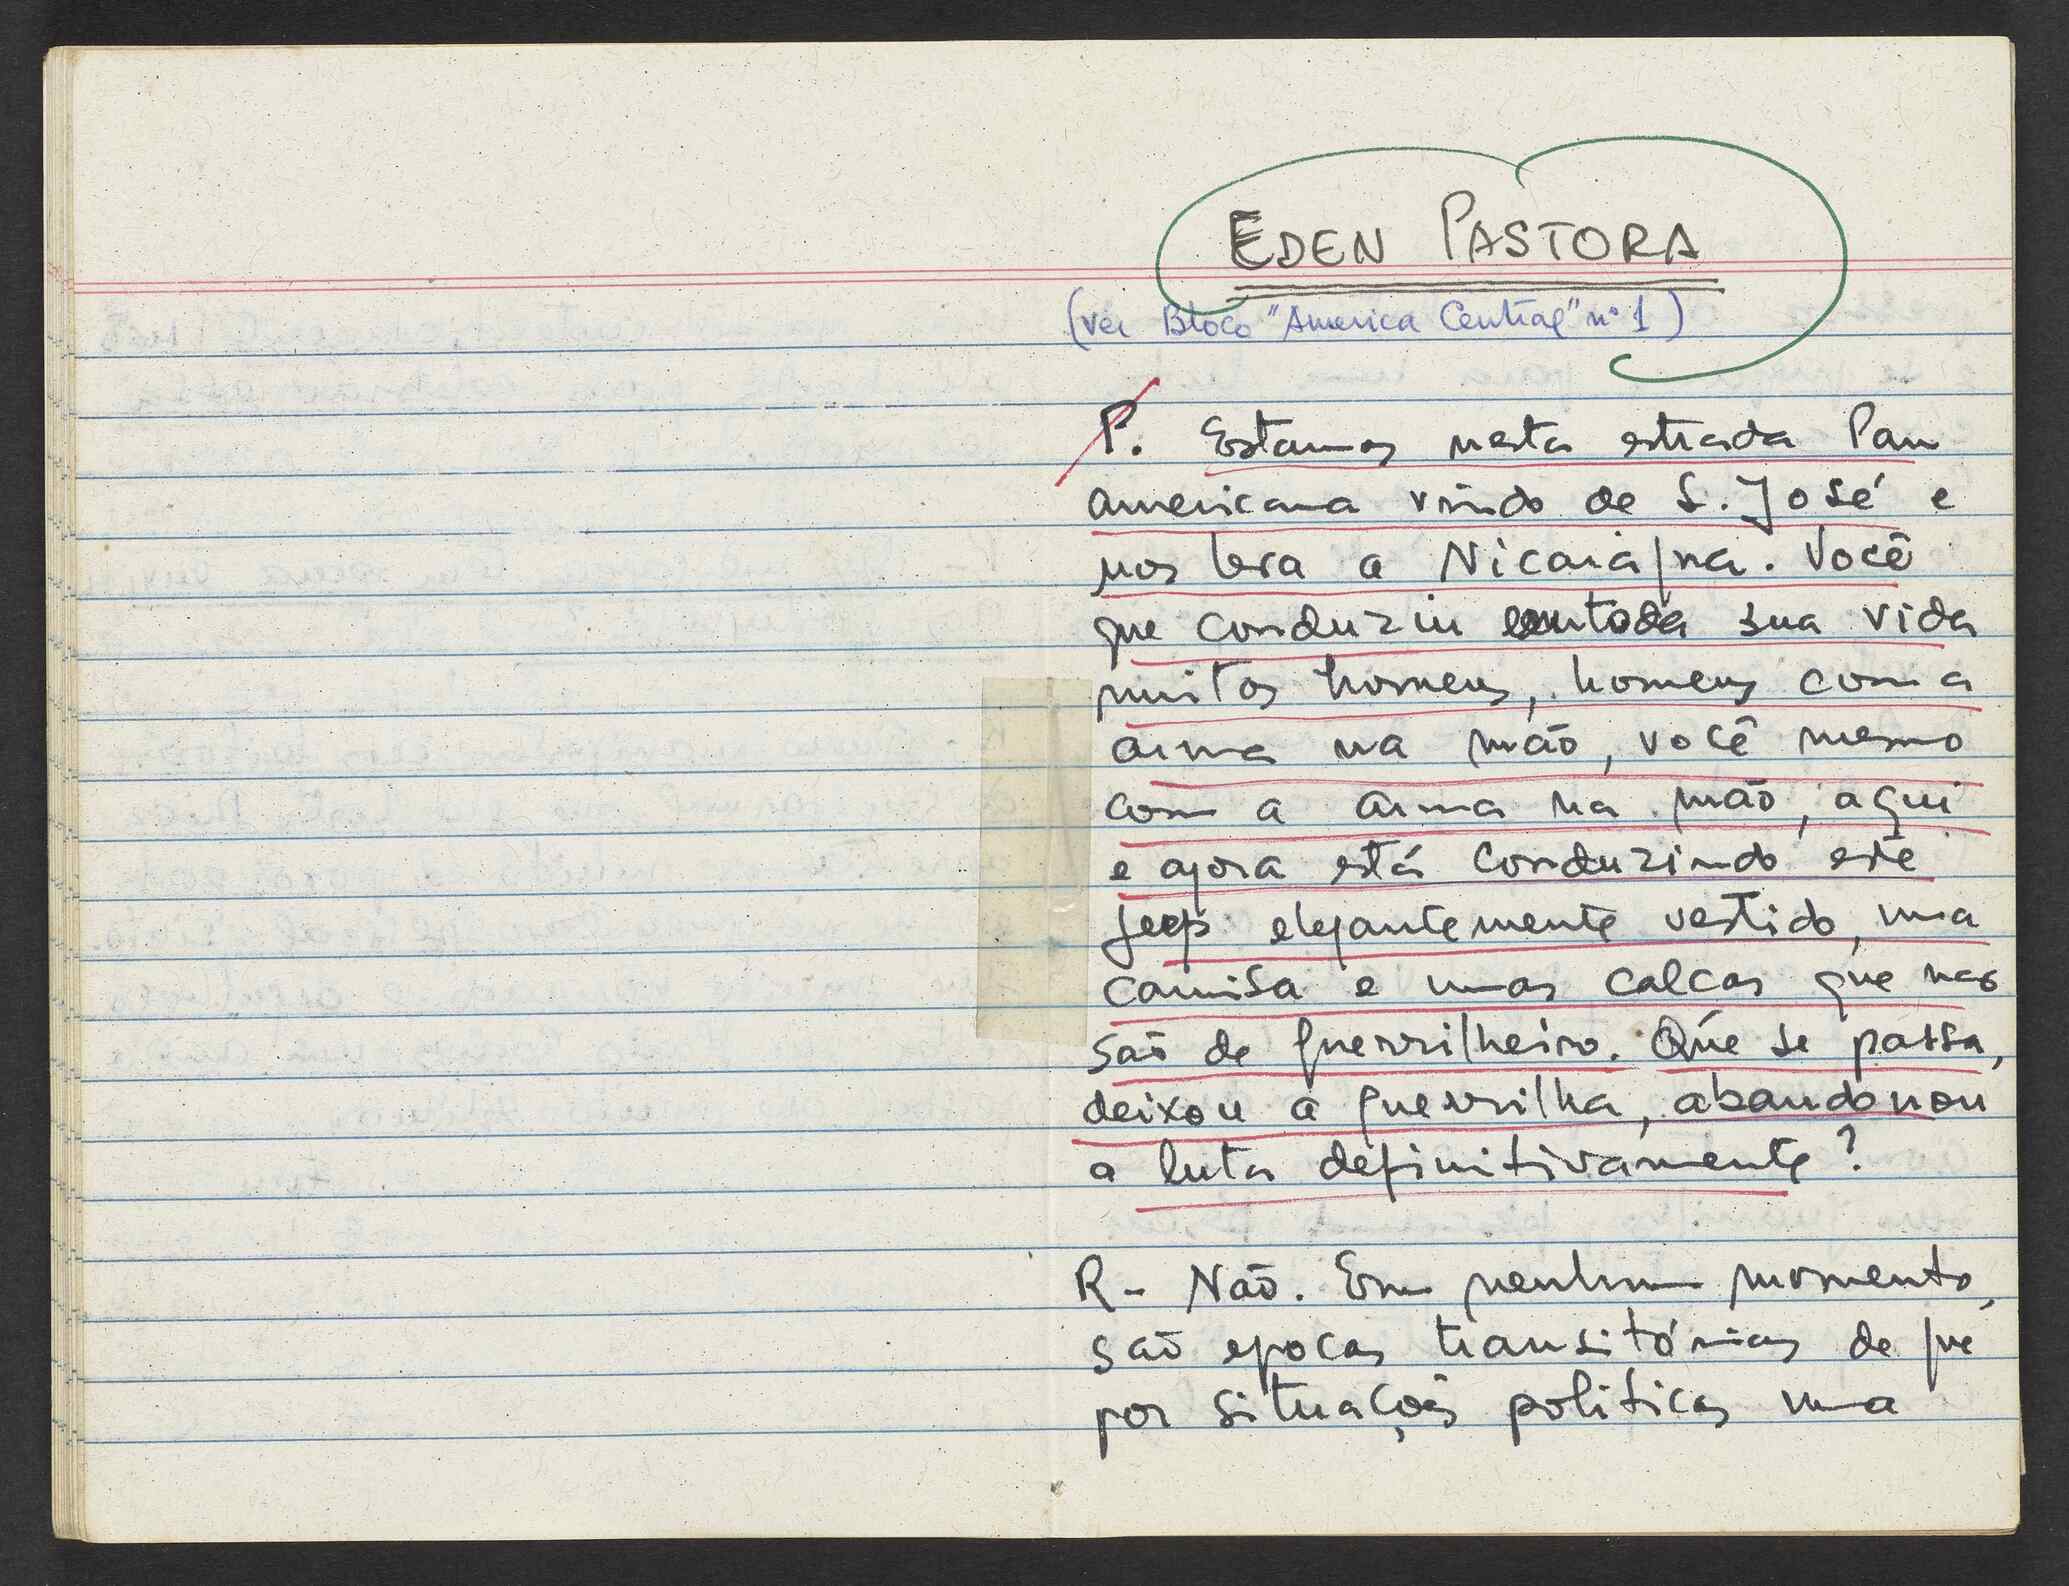 EDEN PASTORA
(ver Bloco "America Central" nº 1)
P. Estamos nesta estrada Pan
americana vindo de S. José e
nos leva a Nicaragua. Você
que conduziu em toda sua vida
muitos homens, homens com a
arma na mão, você mesmo
com a arma na mão, aqui
e agora está conduzindo este
jeep elegantemente vestido, uma
camisa e umas calcas que nao
são de guerrilheiro. Que se passa,
deixou a guerrilha, abandonou
a luta definitivamente?
R- Não. Em nenhum momento,
são epocas transitórias de que
por situações politicas uma